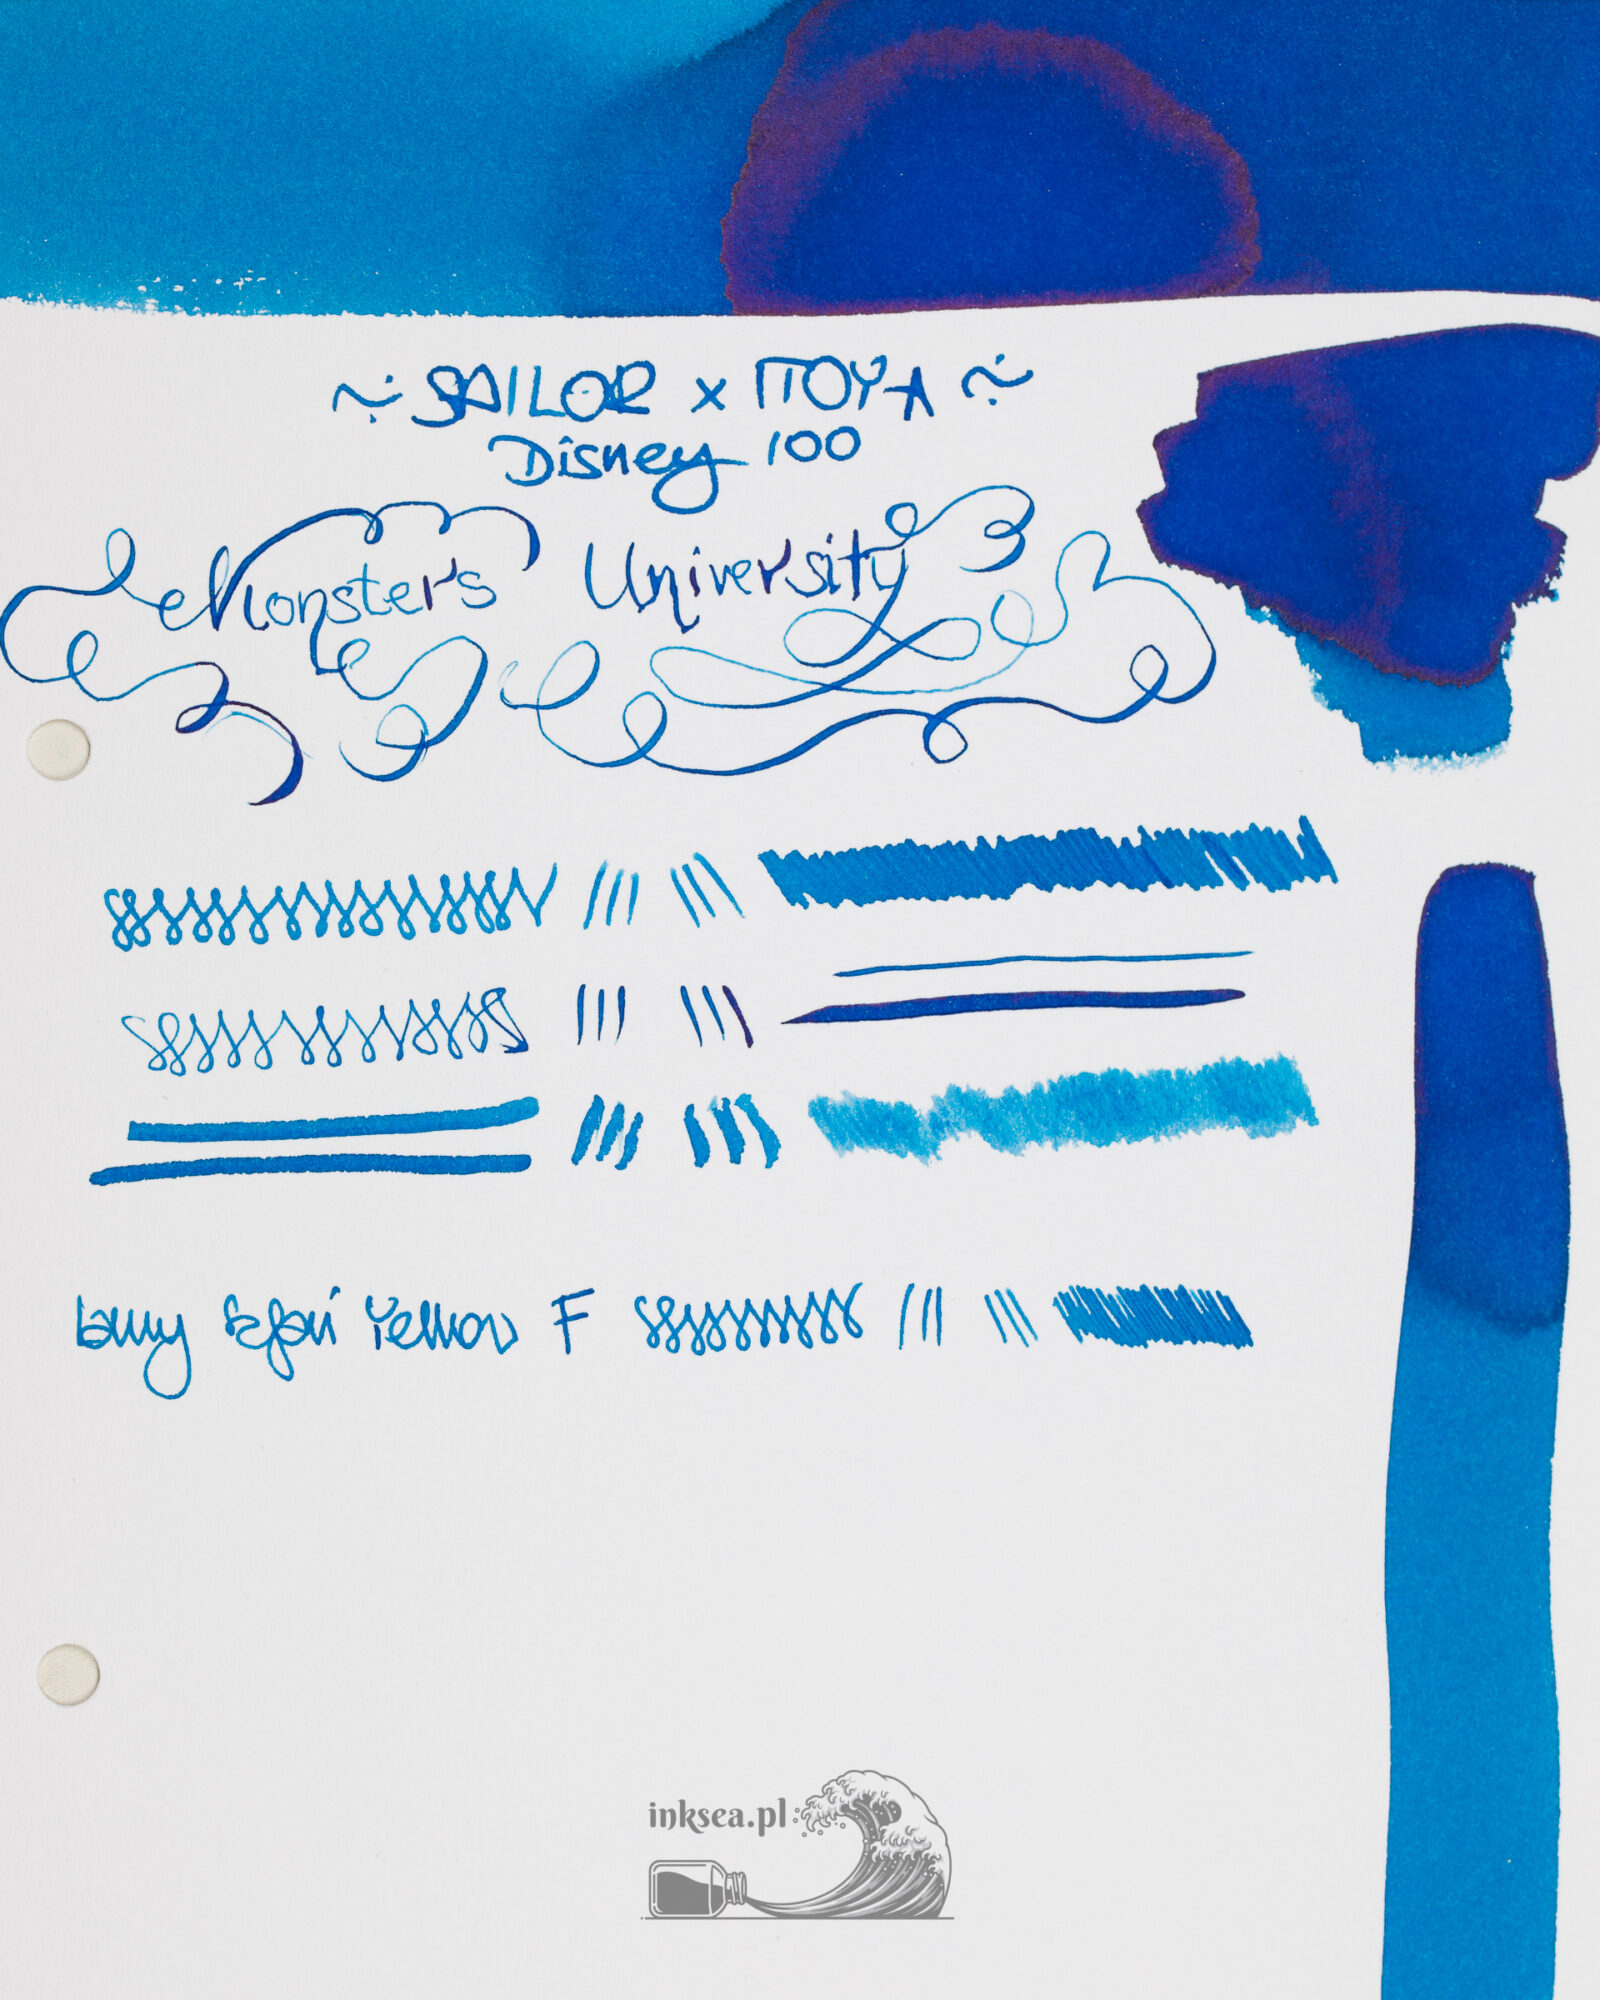 ~ SAILOR x ITOYA ~
Disney 100
Monsters University
Lamy Safari Yellow F
inksea.pl